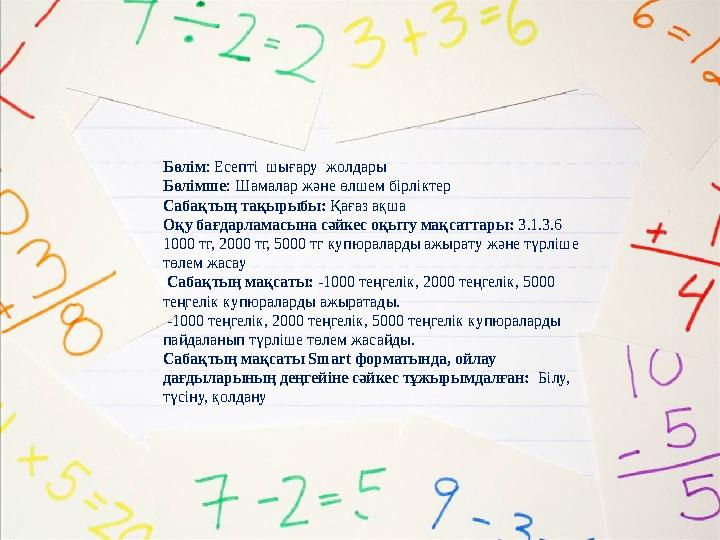 7÷2=2
3+3=6
6=1
Бөлім: Есепті шығару жолдары
Бөлімше: Шамалар және өлшем бірліктер
Сабақтың тақырыбы: Қағаз ақша
Оқу бағдарламасына сәйкес оқыту мақсаттары: 3.1.3.6
1000 тг, 2000 тг, 5000 тг купюраларды ажырату және түрліше
төлем жасау
Сабақтың мақсаты: -1000 теңгелік, 2000 теңгелік, 5000
теңгелік купюраларды ажыратады.
-1000 теңгелік, 2000 теңгелік, 5000 теңгелік купюраларды
пайдаланып түрліше төлем жасайды.
Сабақтың мақсаты Smart форматында, ойлау
дағдыларының деңгейіне сәйкес тұжырымдалған: Білу,
түсіну, қолдану
+ 1
4
3
8
10
- 5
5
+5=20
7-2=5
9-3=